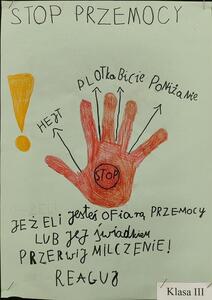 STOP PRZEMOCY
HEJT
PLOTKA
BICIE
PONIŻANIE
STOP
JEŻELI jesteś OFiARĄ PRZEMOCY
LUB jej świadkiem
PRZERWIJ MILCZENIE!
REAGUJ
Klasa III